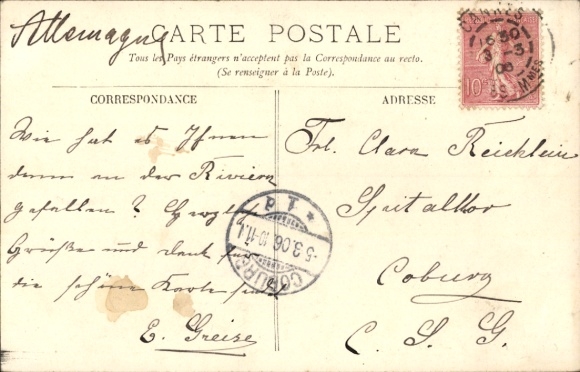 Allemagne
CARTE POSTALE
Tous les Pays étrangers n'acceptent pas la Correspondance au recto.
(Se renseigner à la Poste).
CORRESPONDANCE
Wie hat es Ihnen
denn an der Riviera
gefallen? Herzl.
Grüße und Dank für
die schöne Karte
E. Greise
ADRESSE
Frl. Clara Reicklein
Spitalthor
Coburg
C. S. G.
10
COBURG
5.3.06.10-11.V.